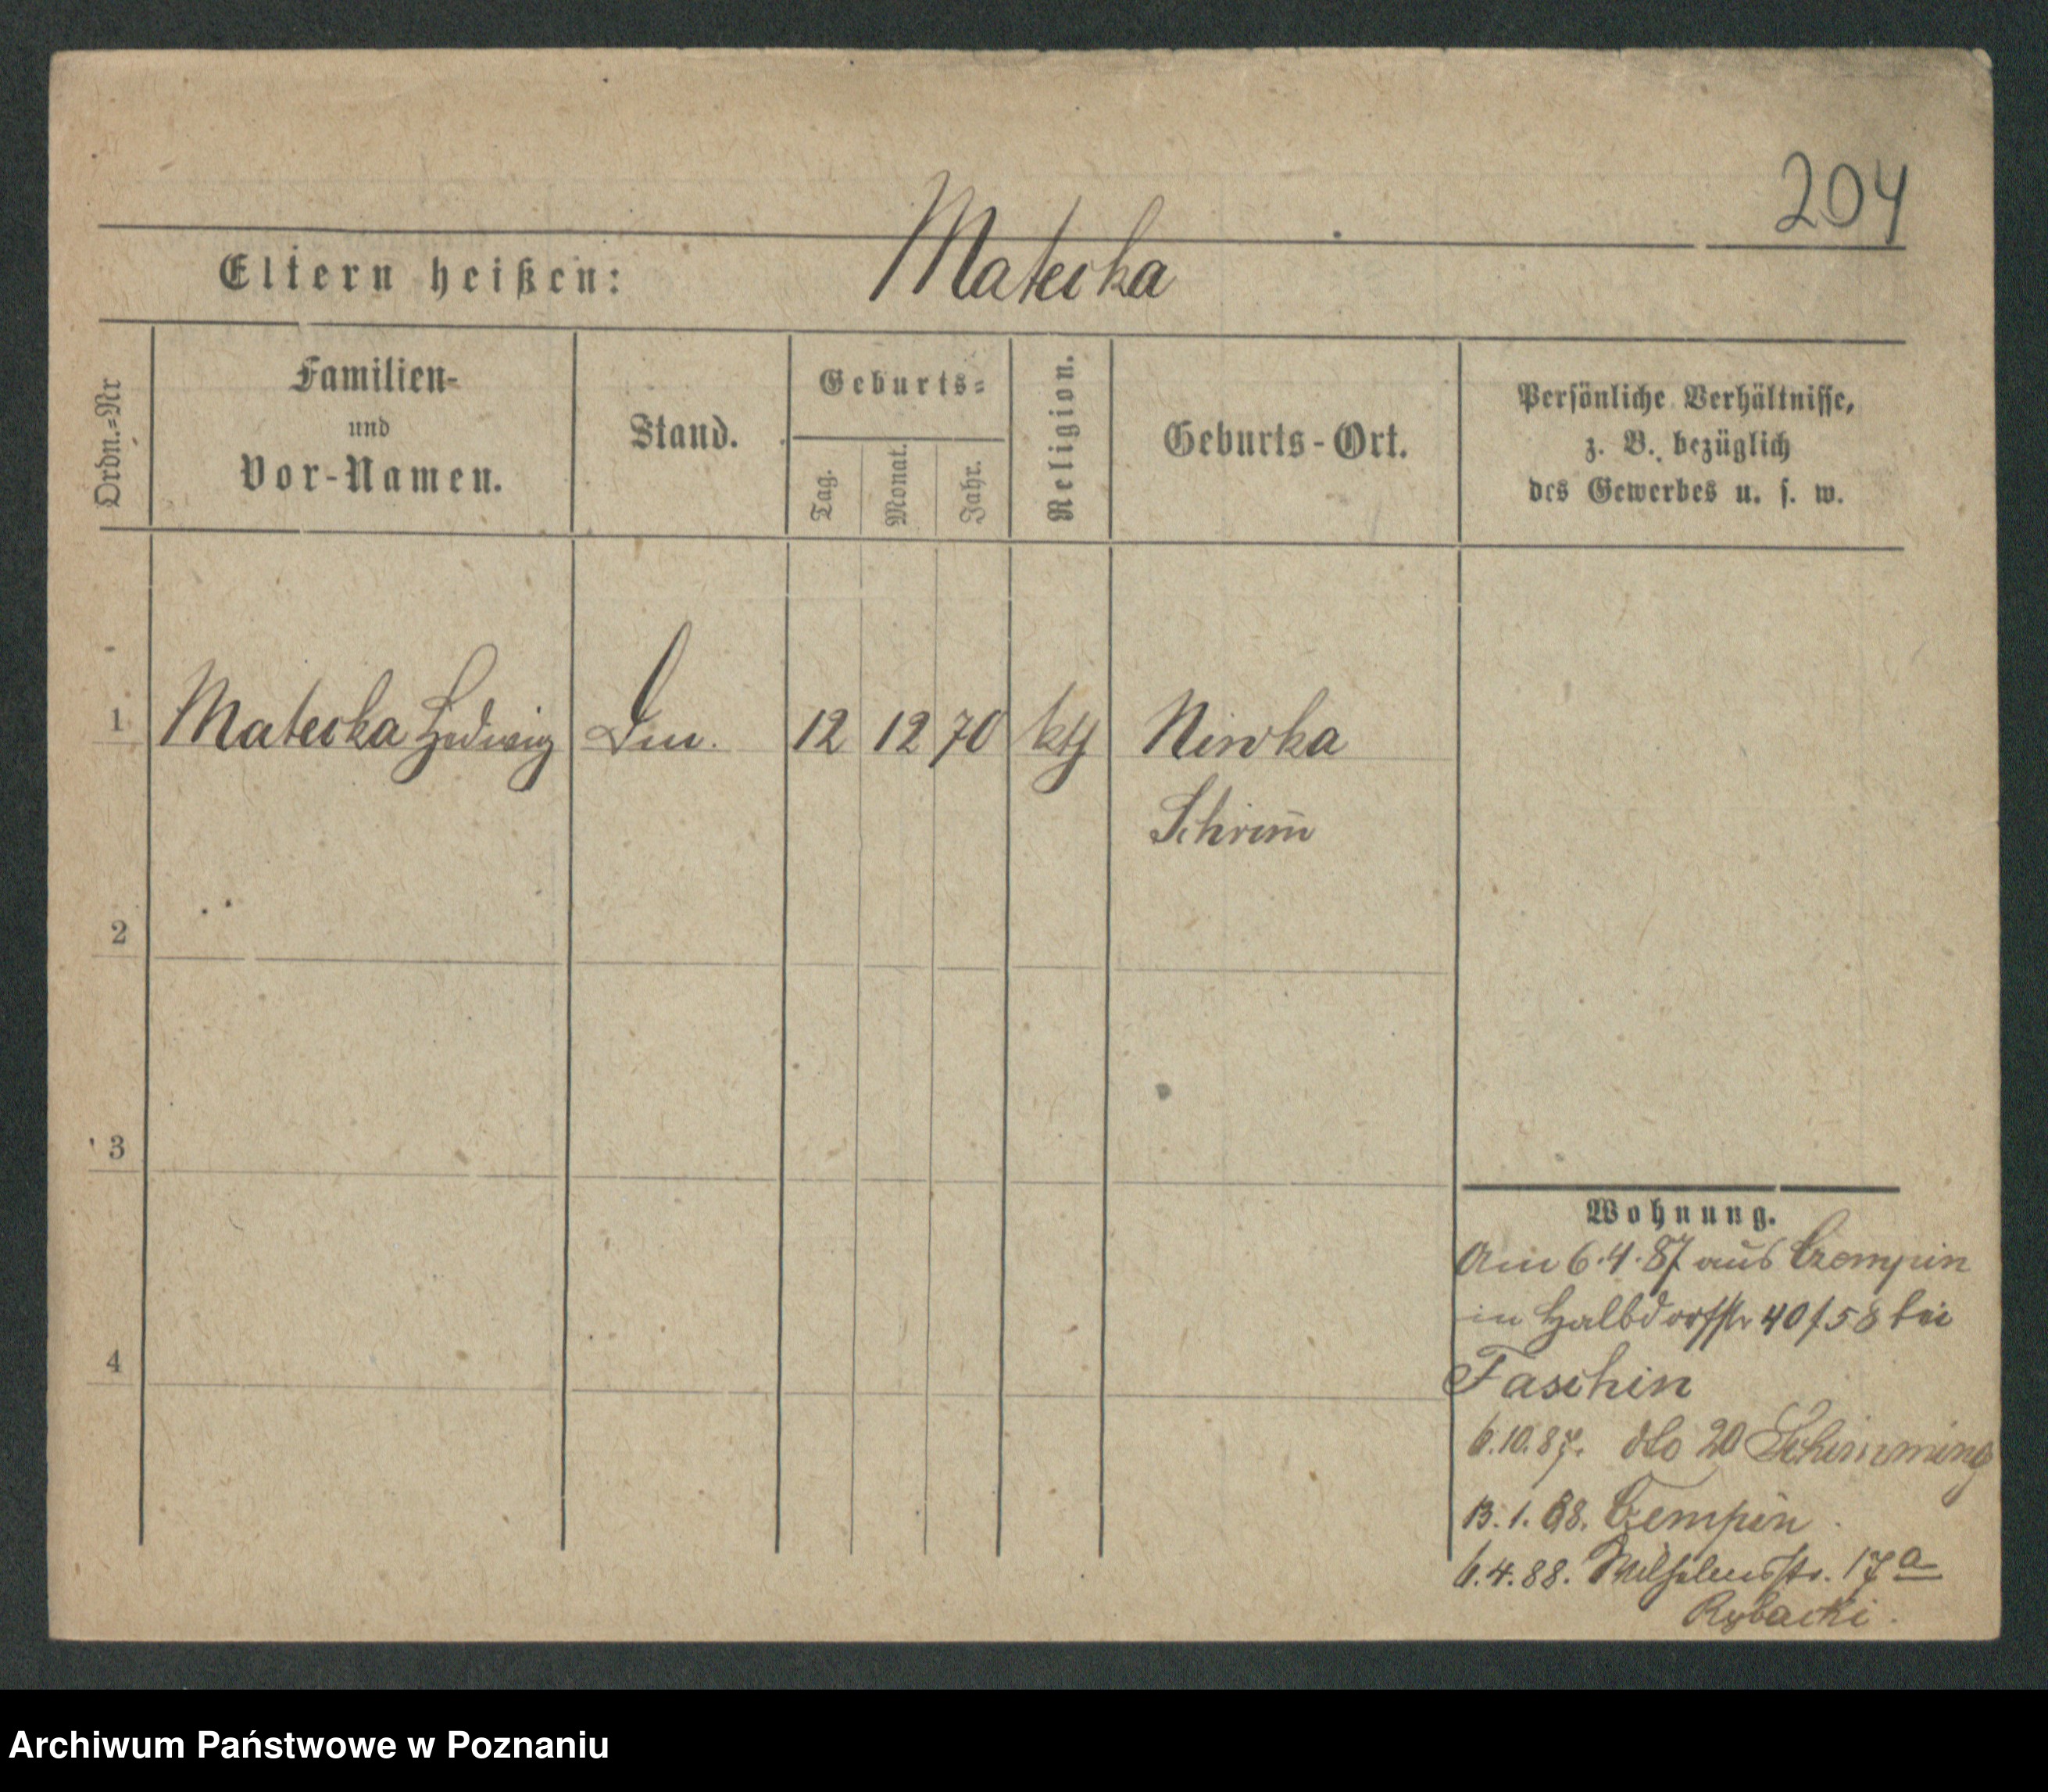 204
Eltern heißen: Matecka
Ordn.=Nr
Familien-
und
Vor-Namen.
Stand.
Geburts=
Tag.
Monat.
Jahr.
Religion.
Geburts-Ort.
Persönliche Verhältnisse,
z. B. bezüglich
des Gewerbes u. s. w.
1 Matecka Hedwig 12 12 70 kth Niwka
Schrim̄
2
3
4
Wohnung.
Am 6.4.87 aus Czempin
in Halbdorfstr 40/58 bei
Faschin
6.10.87. dto 20 Schimming
13.1.88. Czempin
6.4.88. Wilhelmstr. 17a
Rybacki.
Archiwum Państwowe w Poznaniu